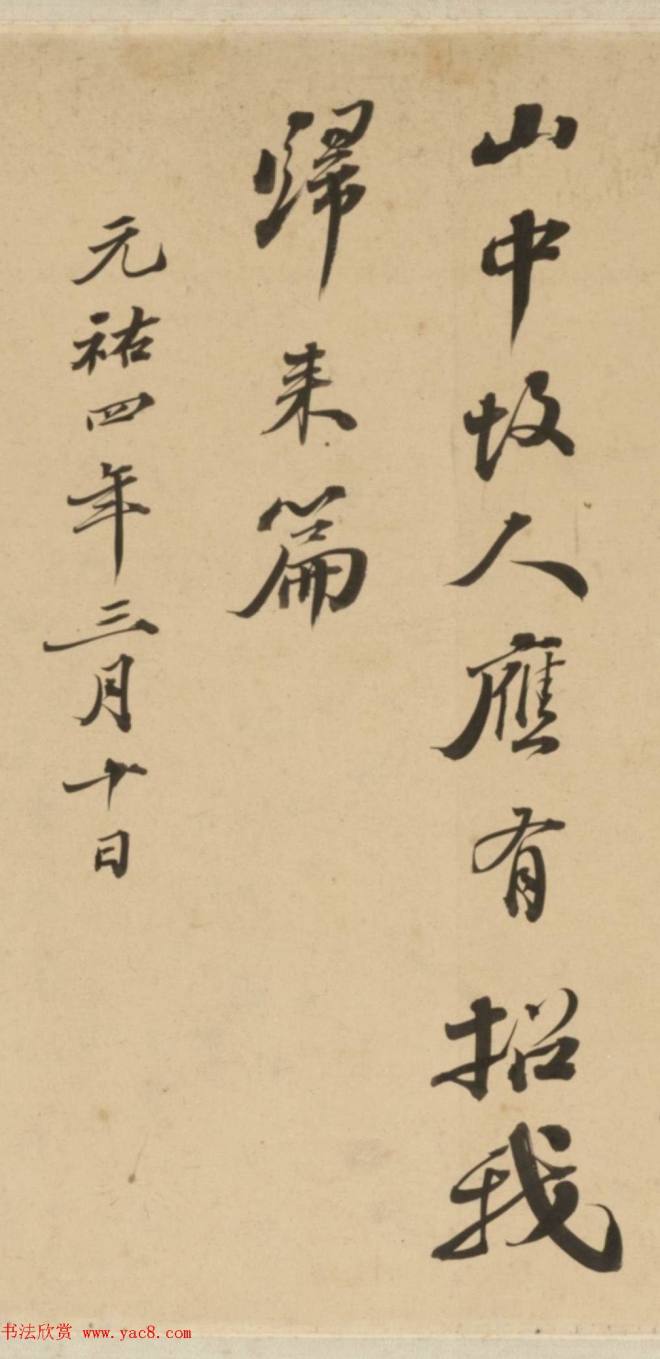 山中故人應有招我
歸来篇
元祐四年三月十日
书法欣赏 www.yac8.com